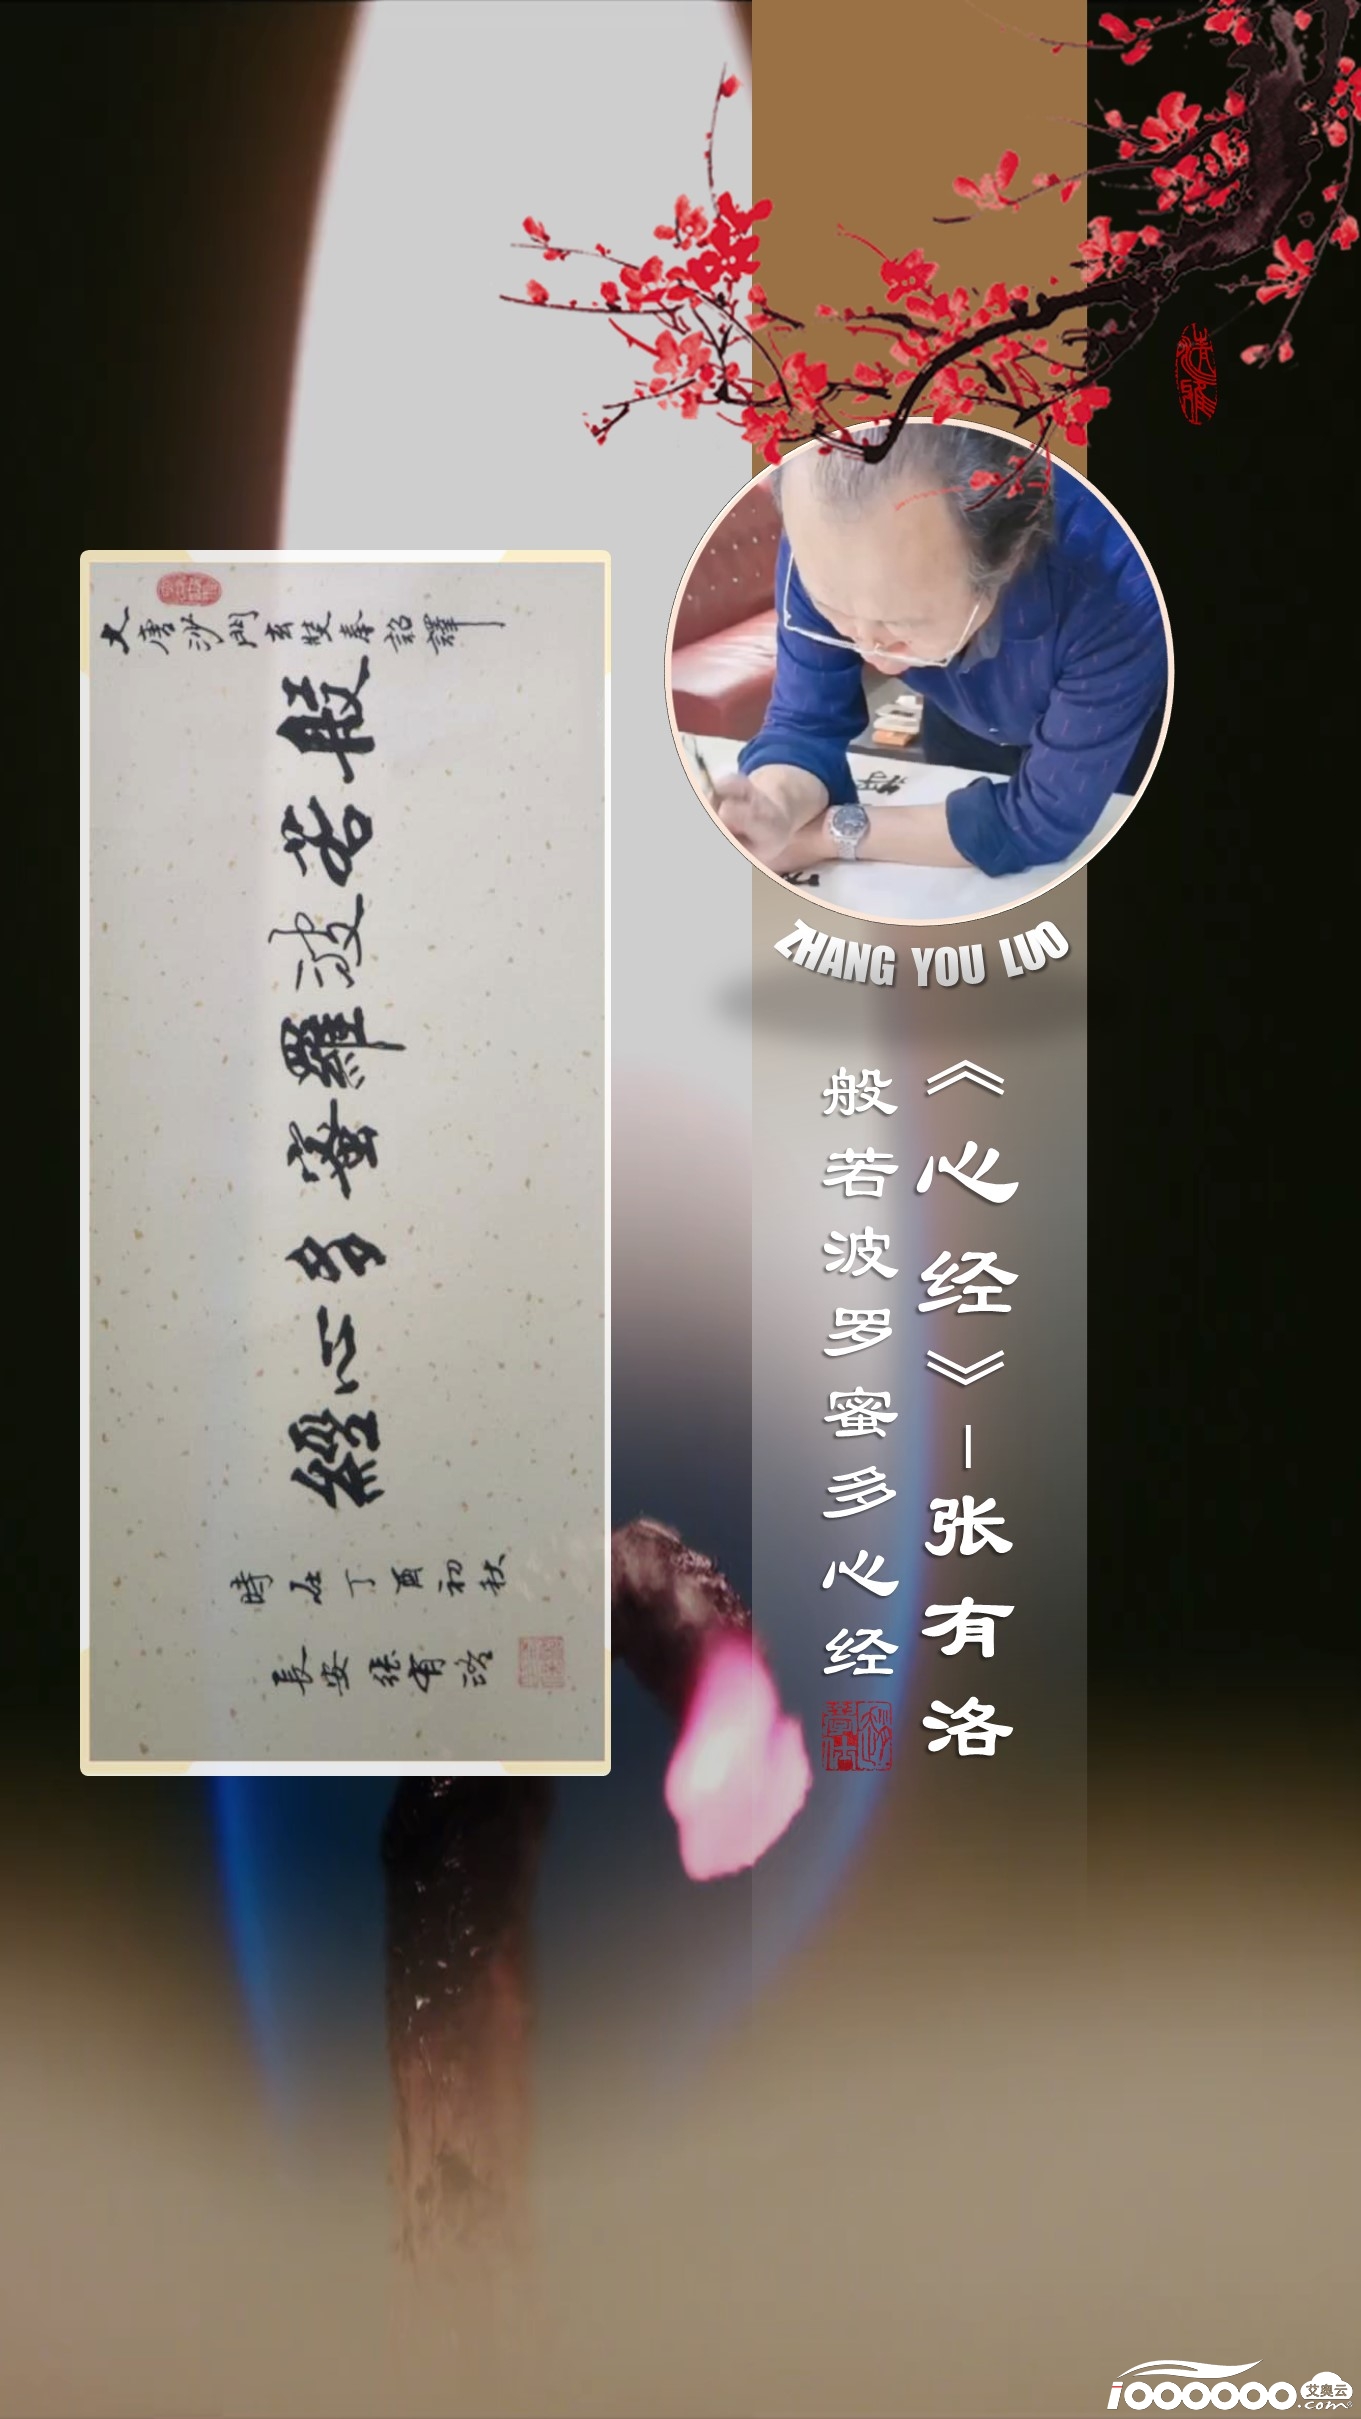 大唐沙門玄奘奉詔譯
般若波羅蜜多心經
時在丁酉初秋
長安張有洛
ZHANG YOU LUO
《心经》-张有洛
般若波罗蜜多心经
i000000.com
艾奥云